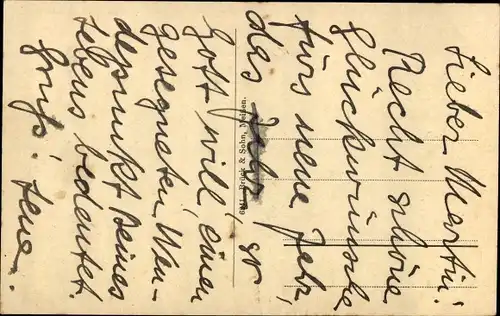 Lieber Martin!
Recht schöne
Glückwünsche
fürs neue Jahr,
das Jahr, so
Gott will, einen
gesegneten Wen-
depunkt Deines
Lebens bedeutet.
Gruß! Lene.
6941 Brück & Sohn, Meißen.